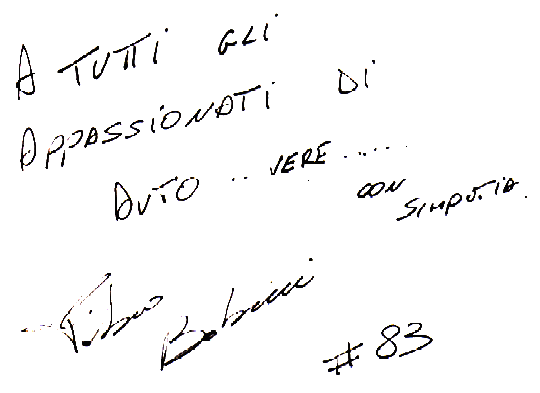 A TUTTI GLI
APPASSIONATI DI
AUTO .. VERE ......
CON
SIMPATIA.
#83